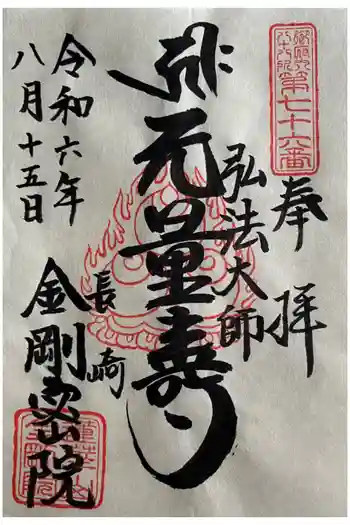 第七十六番
奉拝
弘法大師
无量壽
長崎
金剛密院
令和六年
八月十五日